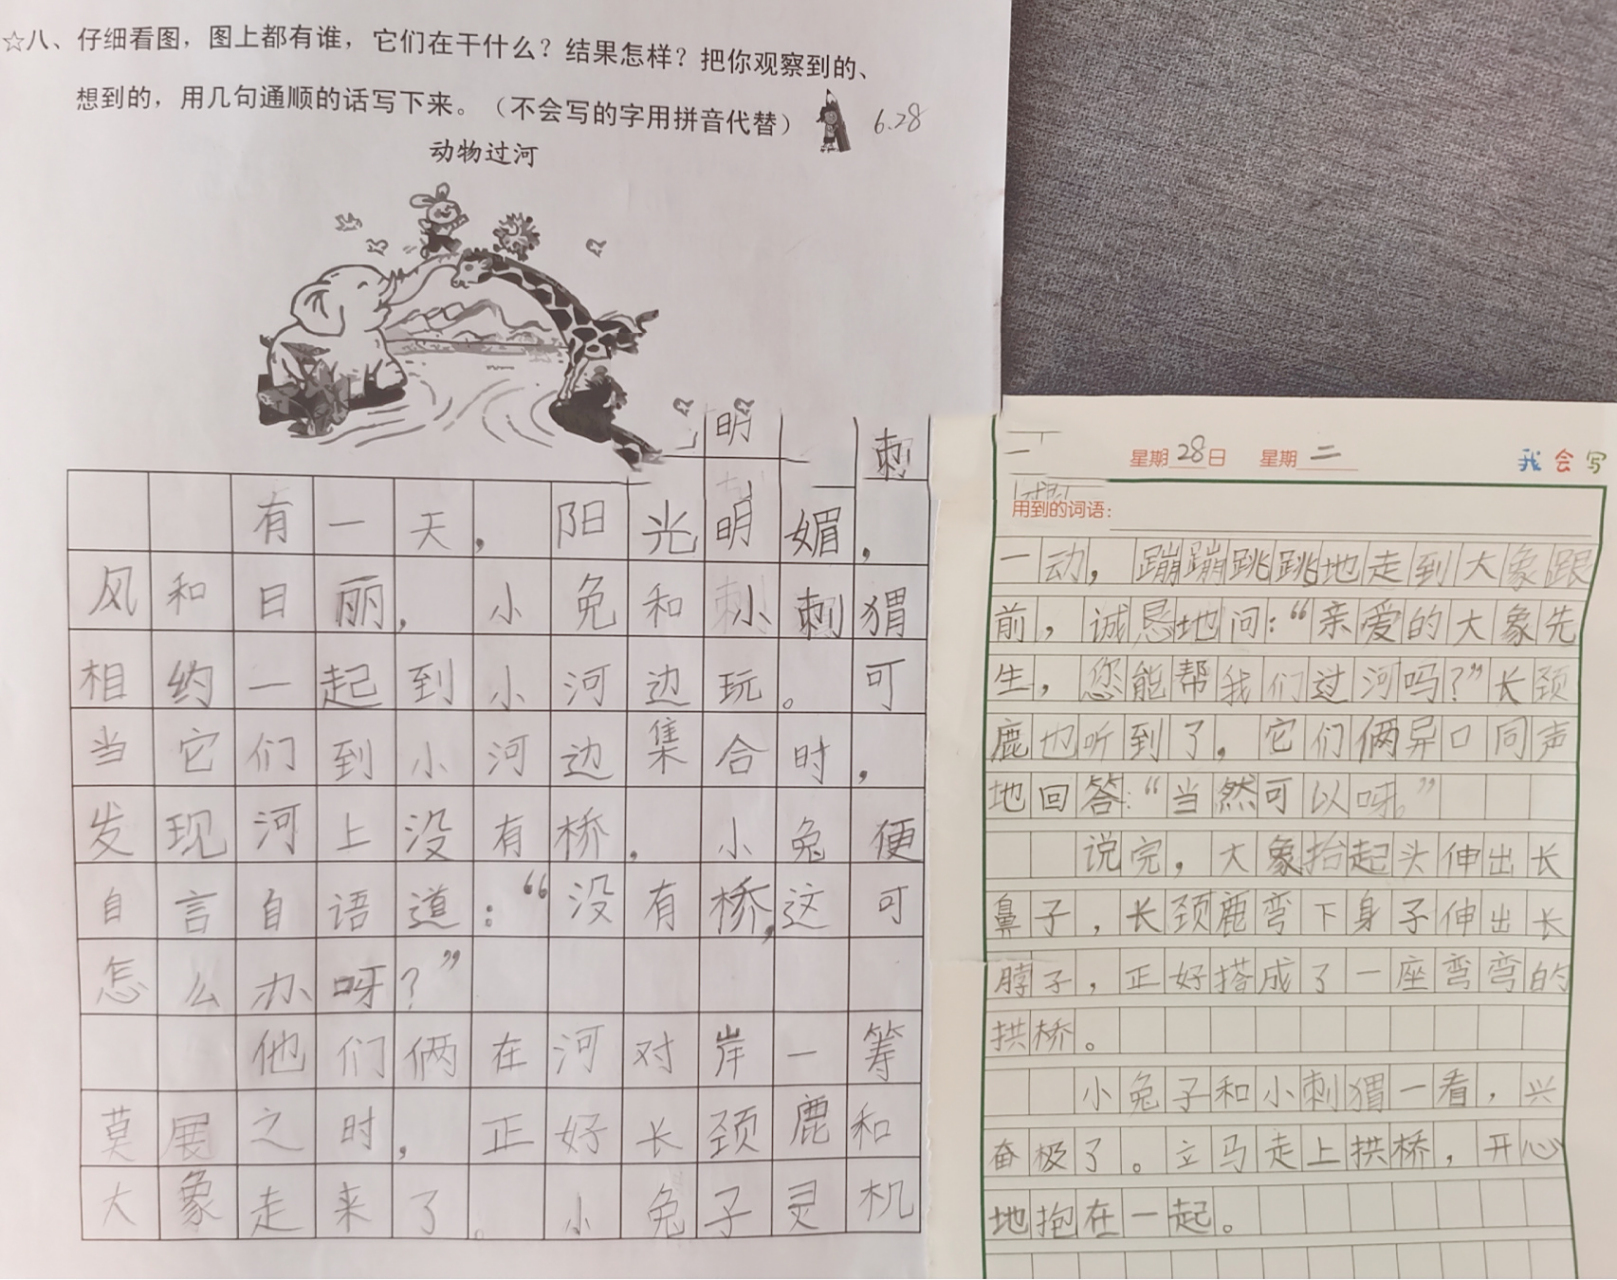 ☆八、仔细看图，图上都有谁，它们在干什么？结果怎样？把你观察到的、
想到的，用几句通顺的话写下来。（不会写的字用拼音代替）
6.28
动物过河
明
刺
有一天，阳光明媚，
风和日丽，小兔和小刺猬
相约一起到小河边玩。可
当它们到小河边集合时，
发现河上没有桥，小兔便
自言自语道：“没有桥，这可
怎么办呀？”
他们俩在河对岸一筹
莫展之时，正好长颈鹿和
大象走来了。小兔子灵机
星期28日 星期二 我会写
用到的词语：
一动，蹦蹦跳跳地走到大象跟
前，诚恳地问：“亲爱的大象先
生，您能帮我们过河吗？”长颈
鹿也听到了，它们俩异口同声
地回答：“当然可以呀。”
说完，大象抬起头伸出长
鼻子，长颈鹿弯下身子伸出长
脖子，正好搭成了一座弯弯的
拱桥。
小兔子和小刺猬一看，兴
奋极了。立马走上拱桥，开心
地抱在一起。